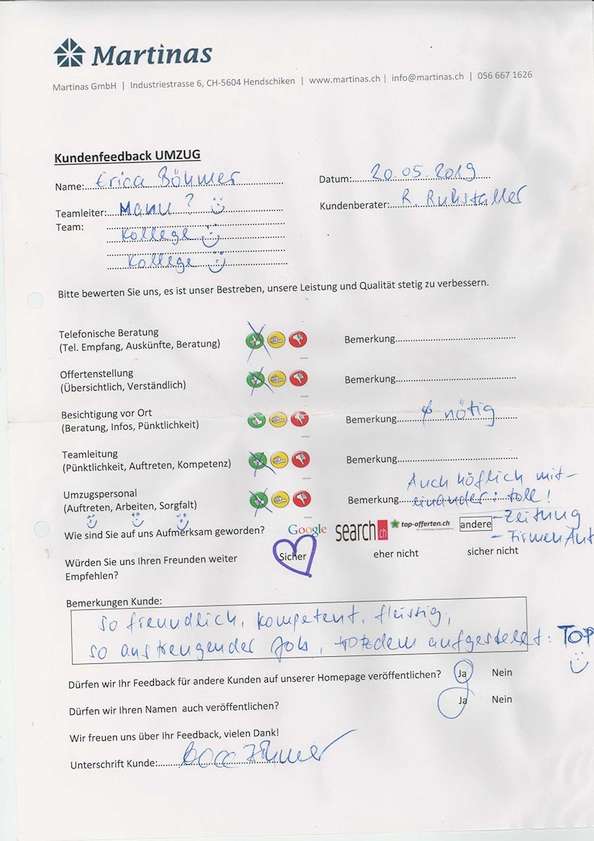 Martinas
Martinas GmbH | Industriestrasse 6, CH-5604 Hendschiken | www.martinas.ch | info@martinas.ch | 056 667 1626
Kundenfeedback UMZUG
Name: Erica Böhmer Datum: 20.05.2019
Teamleiter: Manu ? Kundenberater: R. Ruhstaller
Team:
Kollege
Kollege
Bitte bewerten Sie uns, es ist unser Bestreben, unsere Leistung und Qualität stetig zu verbessern.
Telefonische Beratung
(Tel. Empfang, Auskünfte, Beratung) Bemerkung
Offertenstellung
(Übersichtlich, Verständlich) Bemerkung
Besichtigung vor Ort
(Beratung, Infos, Pünktlichkeit) Bemerkung nötig
Teamleitung
(Pünktlichkeit, Auftreten, Kompetenz) Bemerkung
Umzugspersonal Auch höflich mit-
(Auftreten, Arbeiten, Sorgfalt) Bemerkung einander: toll!
Wie sind Sie auf uns Aufmerksam geworden? Google search.ch top-offerten.ch andere - Zeitung
- Firmen Auto
Würden Sie uns Ihren Freunden weiter Sicher eher nicht sicher nicht
Empfehlen?
Bemerkungen Kunde:
so freundlich, kompetent, fleissig,
so anstrengender Job, trotzdem aufgestellt: TOP
Dürfen wir Ihr Feedback für andere Kunden auf unserer Homepage veröffentlichen? Ja Nein
Dürfen wir Ihren Namen auch veröffentlichen? Ja Nein
Wir freuen uns über Ihr Feedback, vielen Dank!
Unterschrift Kunde: